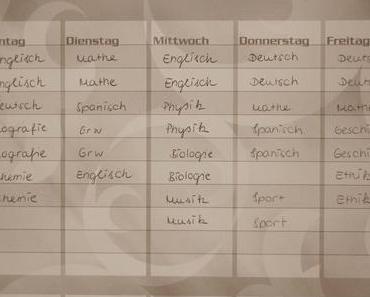 ntag Dienstag Mittwoch Donnerstag Freitag
nglisch Mathe Englisch Deutsch Deut
nglisch Mathe Englisch Deutsch Deu
eutsch Spanisch Physik Mathe Mathe
ografie Grw Physik Spanisch Geschi
ografie Grw Biologie Spanisch Geschi
hemie Englisch Biologie Ethik
hemie Musik Sport Ethik
Musik Sport